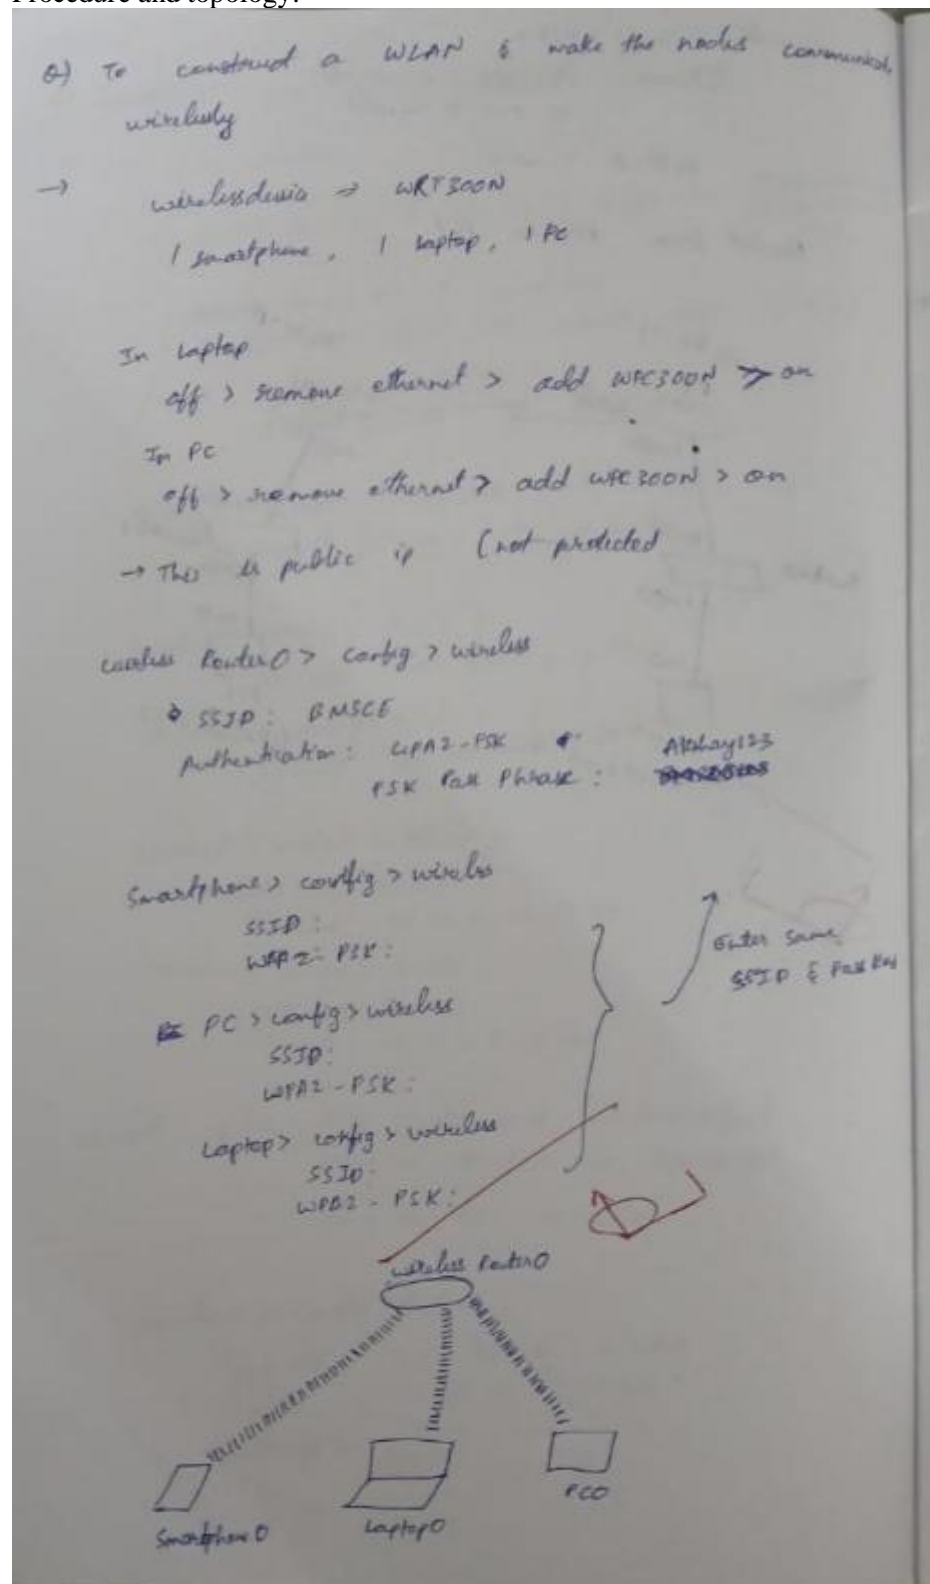 Procedure and topology:
Q) To construct a WLAN & make the nodes communicate
wirelessly
→ wirelessdevice → WRT300N
1 smartphone, 1 laptop, 1 PC
In Laptop
off > remove ethernet > add WPC300N > on
In PC
off > remove ethernet > add WPC300N > on
→ This is public ip (not protected
Router0 > config > wireless
SSID: BMSCE
Authentication: WPA2-PSK
PSK Pass Phrase: Akshay123
Smartphone > config > wireless
SSID:
WPA2-PSK:
Enter same
SSID & Pass Key
PC > config > wireless
SSID:
WPA2-PSK:
Laptop > config > wireless
SSID:
WPA2-PSK:
wireless Router0
PC0
Smartphone0
Laptop0